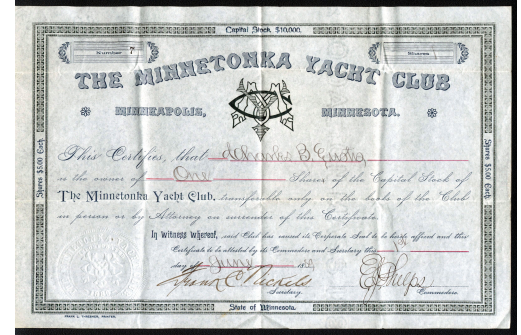 Capital Stock, $10,000.
Number 7
Shares
THE MINNETONKA YACHT CLUB
MINNEAPOLIS, MINNESOTA.
This Certifies, that Charles B. Eustis
is the owner of One Shares of the Capital Stock of
The Minnetonka Yacht Club, transferable only on the books of the Club
in person or by Attorney on surrender of this Certificate.
In Witness Whereof, said Club has caused its Corporate Seal to be hereto affixed and this
Certificate to be attested by its Commodore and Secretary this
day of June 18
Frank C. Nickels
Secretary.
EJ Phelps
Commodore.
Shares $5.00 Each
Shares $5.00 Each
State of Minnesota.